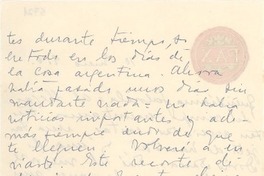 tes durante tiempo, so
bre todo en los días de
la cosa argentina. Ahora
había pasado unos días sin
mandarte nada. No había
noticias importantes y ade-
más tiempo enorde que
te lleguen. Volveré a en
viarte. Este recorte de